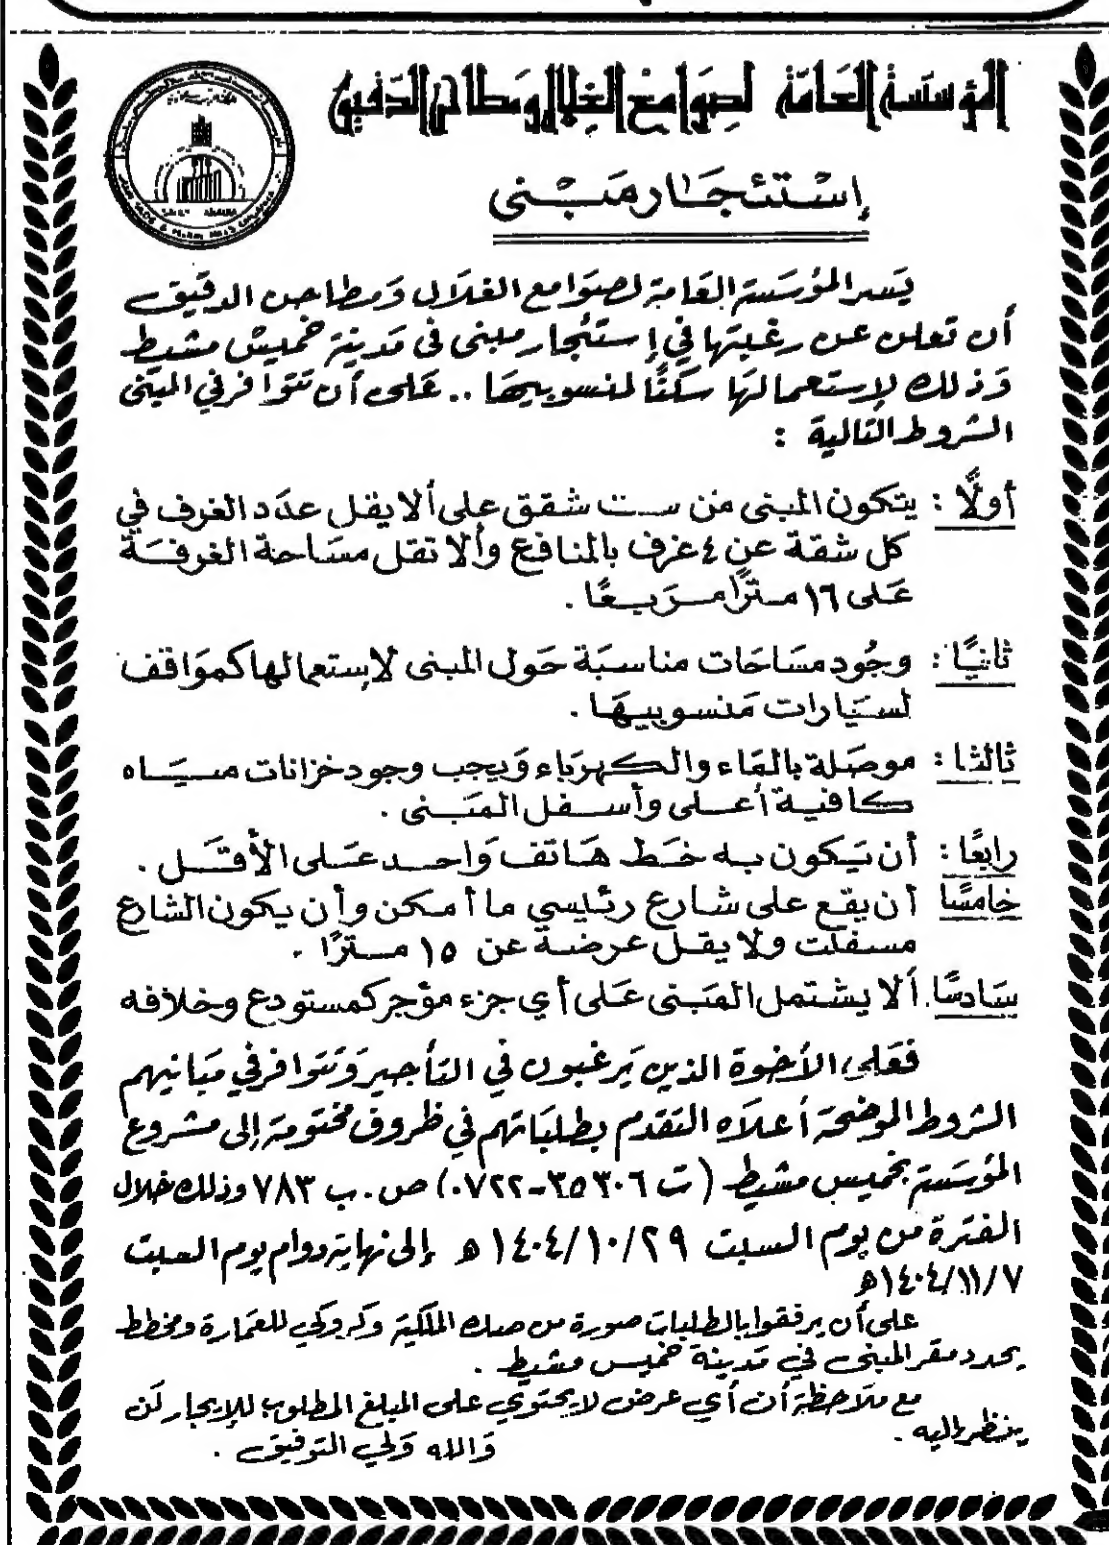 المؤسسة العامة لصوامع الغلال ومطاحن الدقيق
إستئجار مبنى
يسر المؤسسة العامة لصوامع الغلال ومطاحن الدقيق
أن تعلن عن رغبتها في إستئجار مبنى في مدينة خميس مشيط
وذلك لإستعمالها سكنًا لمنسوبيها .. على أن تتوافر في المبنى
الشروط التالية :
أولًا : يتكون المبنى من ست شقق على ألا يقل عدد الغرف في
كل شقة عن ٤ غرف بالمنافع وألا تقل مساحة الغرفة
على ١٦ مترًا مربعًا .
ثانيًا : وجود مساحات مناسبة حول المبنى لإستعمالها كمواقف
لسيارات منسوبيها .
ثالثا : موصلة بالماء والكهرباء ويجب وجود خزانات مياه
كافية أعلى وأسفل المبنى .
رابعًا : أن يكون به خط هاتف واحد على الأقل .
خامسًا أن يقع على شارع رئيسي ما أمكن وأن يكون الشارع
مسفلت ولا يقل عرضة عن ١٥ مترًا .
سادسًا. ألا يشتمل المبنى على أي جزء مؤجر كمستودع وخلافه
فعلى الأخوة الذين يرغبون في التأجير وتتوافر في مبانيهم
الشروط الموضحة أعلاه التقدم بطلباتهم في ظروف مختومة إلى مشروع
المؤسسة بخميس مشيط (ت ٣٥٣٠٦-٠٧٢٢) ص . ب ٧٨٣ وذلك خلال
الفترة من يوم السبت ١٤٠٤/١٠/٢٩ هـ إلى نهاية دوام يوم السبت
١٤٠٤/١١/٧هـ
على أن يرفقوا بالطلبات صورة من صك الملكية وكروكي للعمارة ومخطط
يحدد مقر المبنى في مدينة خميس مشيط .
مع ملاحظة أن أي عرض لا يحتوي على المبلغ المطلوب للإيجار لن
ينظر إليه .
والله ولي التوفيق .